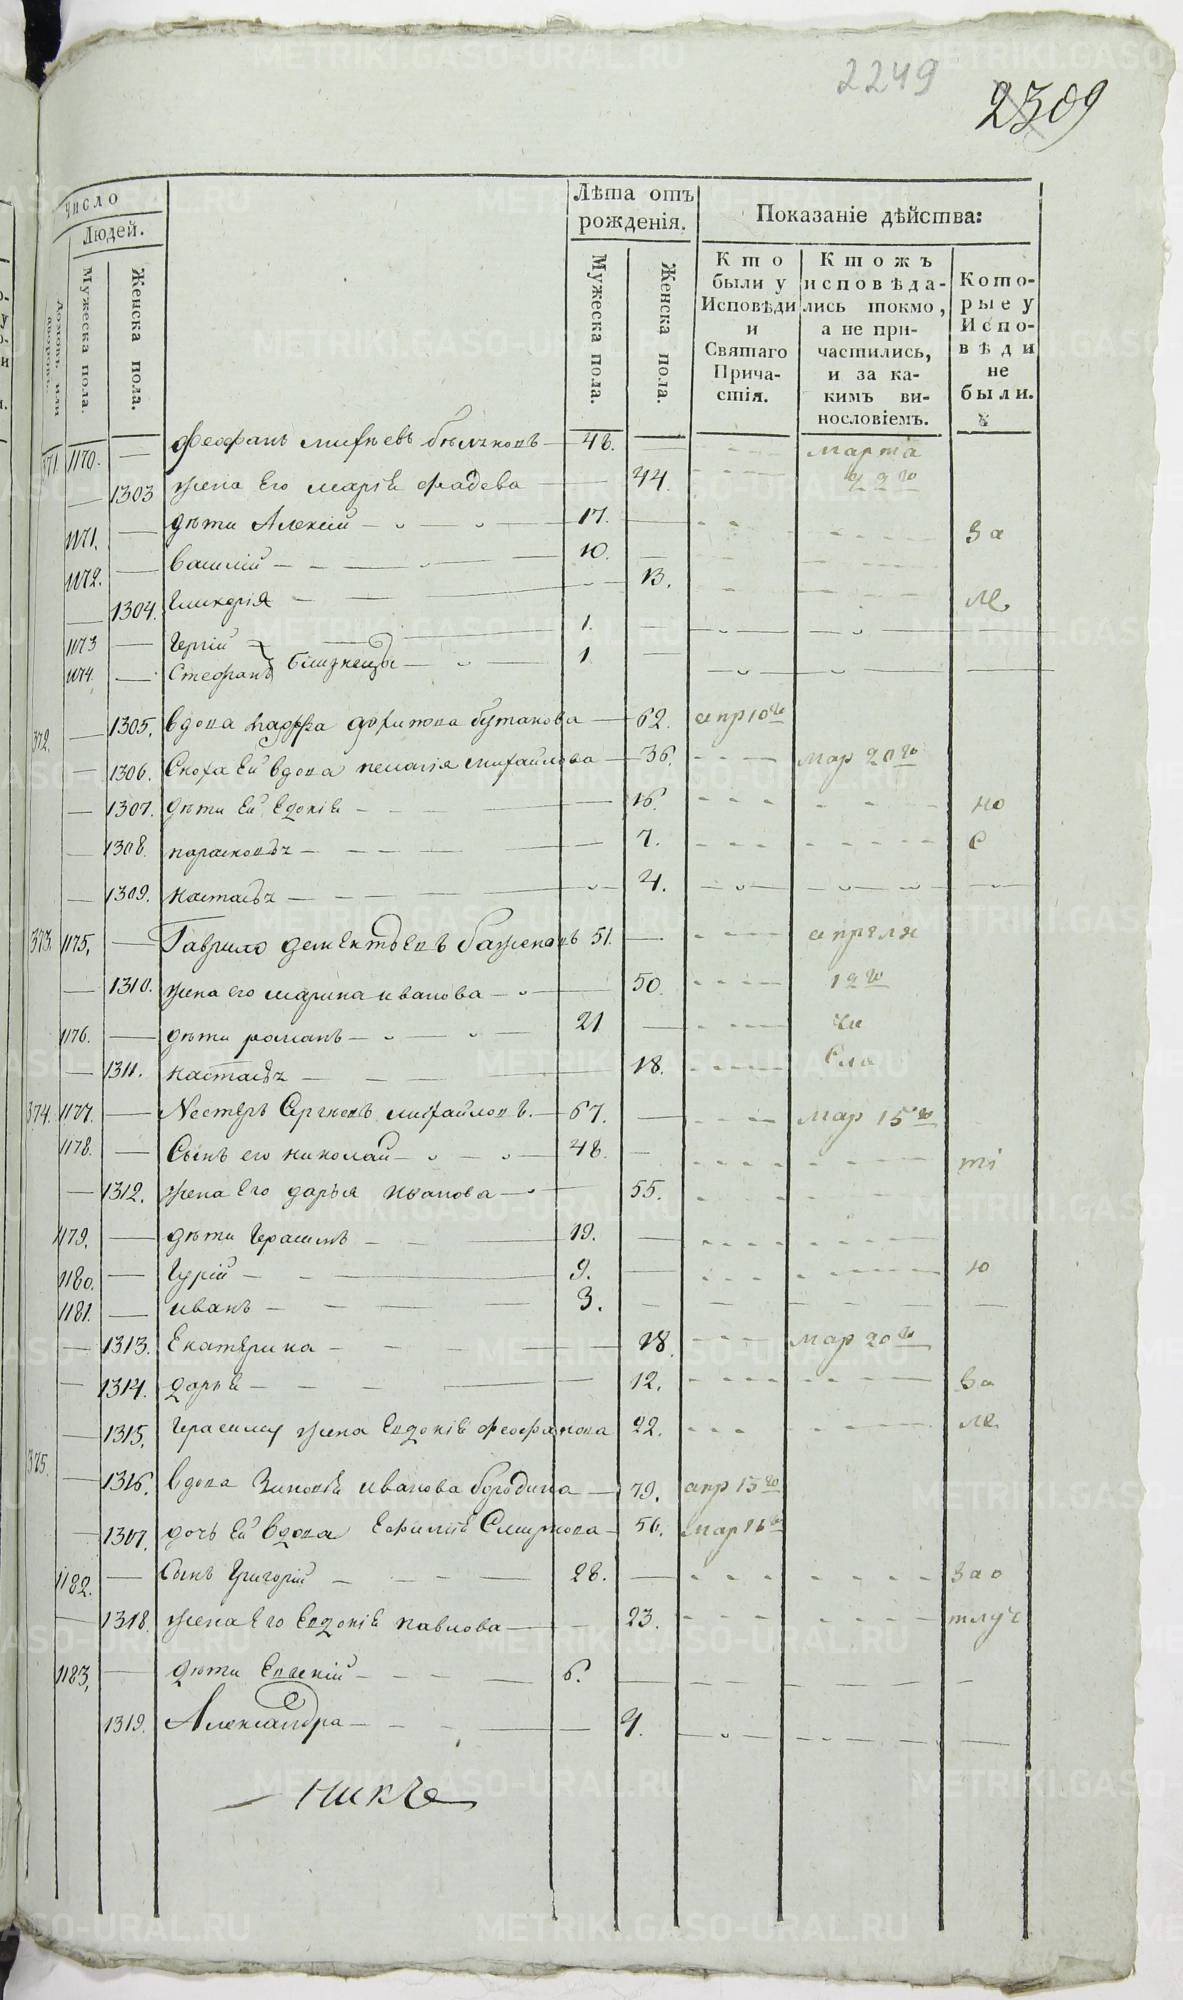 2249
2309
Число
Людей.
Лѣта отъ
рожденія.
Показаніе дѣйства:
Мужеска пола.
Женска пола.
Мужеска пола.
Женска пола.
Кто
были у
Исповѣди
и
Святаго
Прича-
стія.
Ктожъ
исповѣда-
лись токмо,
а не при-
частились,
и за ка-
кимъ ви-
нословіемъ.
Кото-
рые у
Испо-
вѣди
не
были.
371 1170. Феофанъ 48. марта
1303 жена Его марія фадева 44. 22го
1171. дѣти Алексій 17. за
1172. василій 10.
1304. Гликерія 13. ле
1173 1.
1174. Стефанъ близнецы 1
372. 1305. вдова бутакова 62. апр 10го
1306. Сноха Ей вдова пелагія михайлова 36. мар 20го
1307. дѣти Ей Евдокія 16. но
1308. парасковья 7. с
1309. настасья 4.
373. 1175. Гаврило дементьевъ баженовъ 51. апреля
1310. жена его марина иванова 50. 12го
1176. дѣти романъ 21 чи
1311. настасья 18. сло
374. 1177. Нестеръ Сергѣевъ михайловъ. 67. мар 15го
1178. Сынъ его николай 48. ті
1312. жена Его дарья иванова 55.
1179. дѣти Герасимъ 19.
1180. Гурій 9. ю
1181. иванъ 3.
1313. Екатерина 18. мар 20го
1314. дарья 12. за
1315. Герасиму жена Евдокія феофанова 22. ле
375. 1316. вдова Зиновія иванова бородина 79. апр 15го
1307. дочь Ей вдова Ефимія Смирнова 56. мар 16го
1182. Сынъ Григорій 28. зао
1318. жена Его Евдокія павлова 23. тлуч
1183. дѣти Евгеній 6.
1319. Александра 4.
METRIKI.GASO-URAL.RU